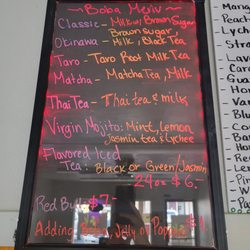 ~ Boba Menu ~
Classic - Milk w/ Brown Sugar
Okinawa - Brown Sugar,
Milk, Black Tea
Taro - Taro Root Milk Tea
Matcha - Matcha Tea, Milk
Thai Tea - Thai tea & milk
Virgin Mojito: Mint, lemon
Jasmin tea & Lychee
Flavored Iced
Tea: Black or Green/Jasmin
24oz $6.-
Red Bull $7-
Adding Boba, Jelly or Popping
Mang
Pass
Lych
Stra
Lav
Car
Gua
Hon